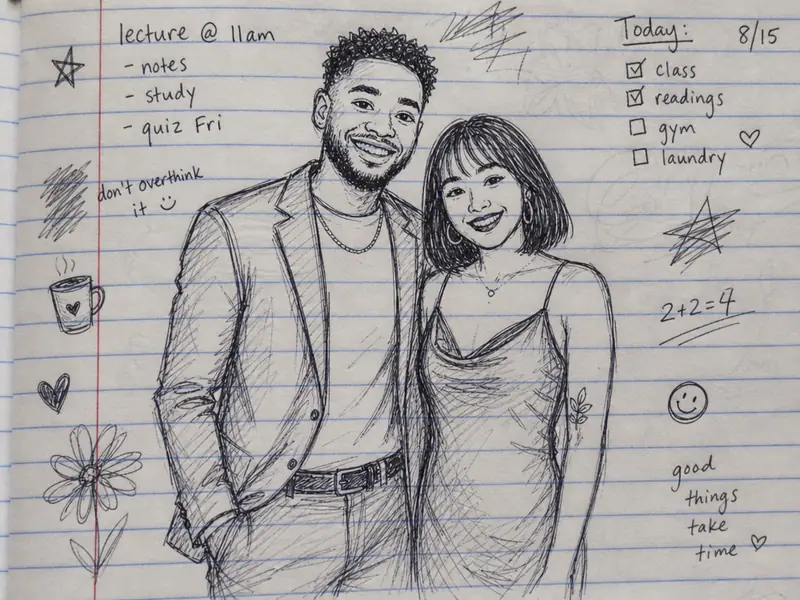 lecture @ 11am
- notes
- study
- quiz Fri
don't overthink
it
Today:
8/15
class
readings
gym
laundry
2+2=4
good
things
take
time